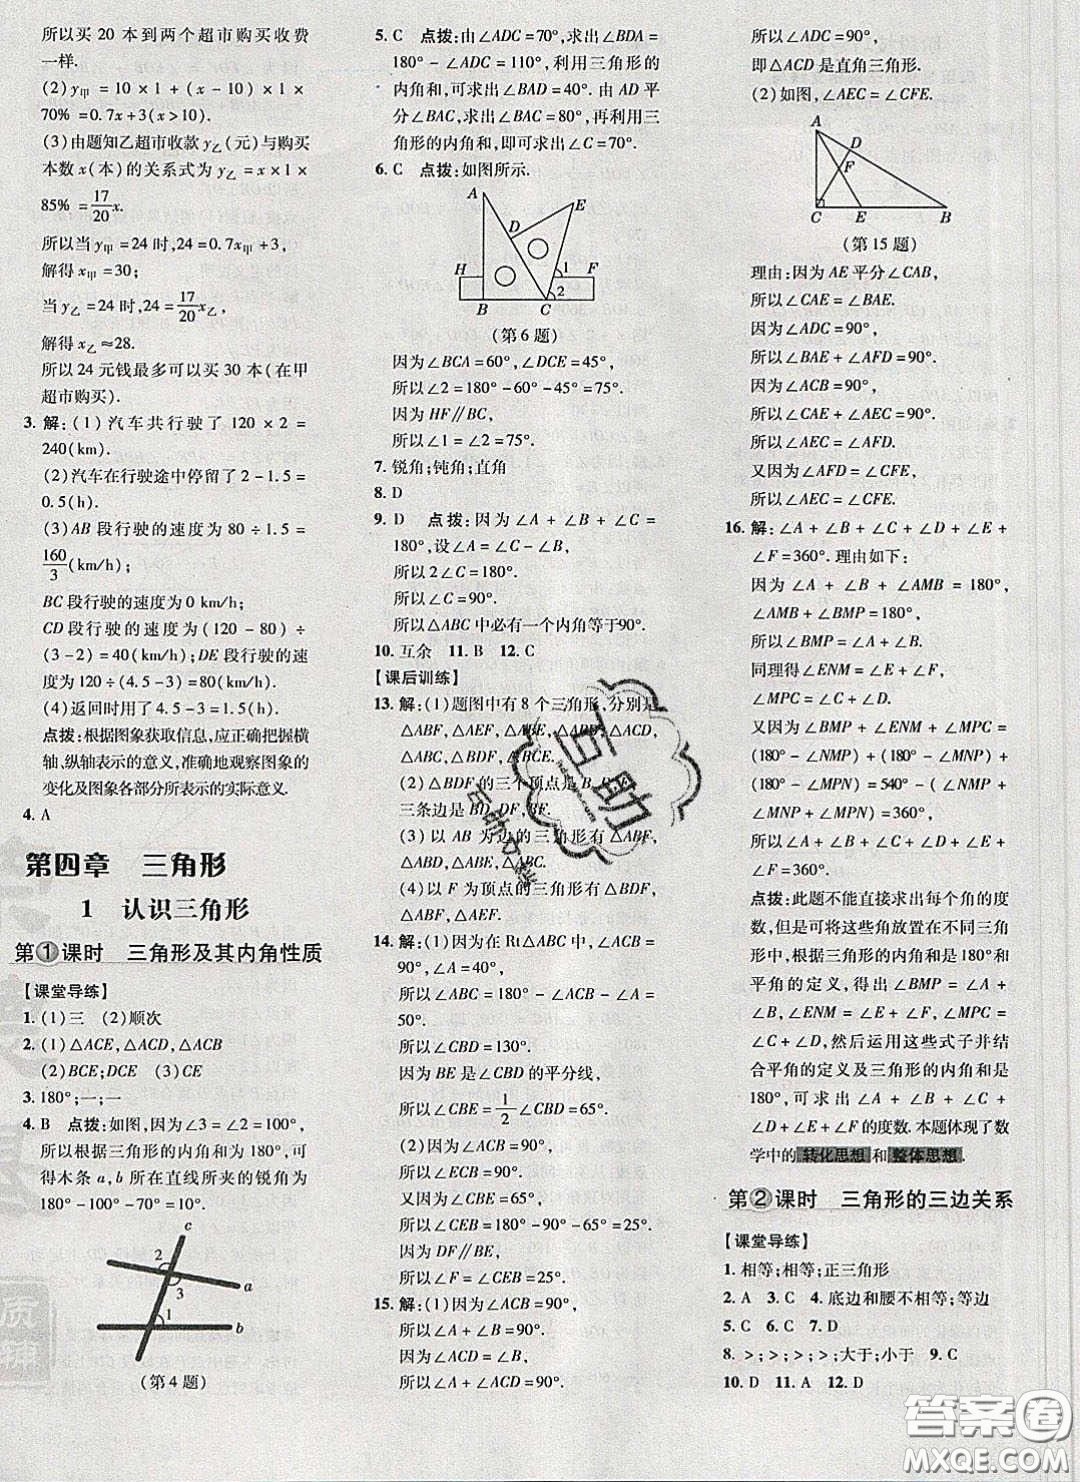 所以买 20 本到两个超市购买收费
一样.
(2)y甲 = 10 × 1 + (x - 10) × 1 ×
70% = 0.7x + 3(x > 10).
(3)由题知乙超市收款 y乙(元)与购买
本数 x(本)的关系式为 y乙 = x × 1 ×
85% = 17/20 x.
所以当 y甲 = 24 时,24 = 0.7x甲 + 3,
解得 x甲 = 30;
当 y乙 = 24 时,24 = 17/20 x乙,
解得 x乙 ≈ 28.
所以 24 元钱最多可以买 30 本(在甲
超市购买).
3. 解:(1)汽车共行驶了 120 × 2 =
240(km).
(2)汽车在行驶途中停留了 2 - 1.5 =
0.5(h).
(3)AB 段行驶的速度为 80 ÷ 1.5 =
160/3(km/h);
BC 段行驶的速度为 0 km/h;
CD 段行驶的速度为(120 - 80) ÷
(3 - 2) = 40(km/h);DE 段行驶的速
度为 120 ÷ (4.5 - 3) = 80(km/h).
(4)返回时用了 4.5 - 3 = 1.5(h).
点拨:根据图象获取信息,应正确把握横
轴、纵轴表示的意义,准确地观察图象的
变化及图象各部分所表示的实际意义.
4. A
第四章 三角形
1 认识三角形
第①课时 三角形及其内角性质
【课堂导练】
1. (1)三 (2)顺次
2. (1)△ACE,△ACD,△ACB
(2)BCE;DCE (3)CE
3. 180°;一;一
4. B 点拨:如图,因为∠3 = ∠2 = 100°,
所以根据三角形的内角和为 180°,可
得木条 a,b 所在直线所夹的锐角为
180° - 100° - 70° = 10°.
c
2
3
a
1
b
(第 4 题)
5. C 点拨:由∠ADC = 70°,求出∠BDA =
180° - ∠ADC = 110°,利用三角形的
内角和,可求出∠BAD = 40°. 由 AD 平
分∠BAC,求出∠BAC = 80°,再利用三
角形的内角和,即可求出∠C = 70°.
6. C 点拨:如图所示.
A
E
D
H
1
F
2
B
C
(第 6 题)
因为∠BCA = 60°,∠DCE = 45°,
所以∠2 = 180° - 60° - 45° = 75°.
因为 HF∥BC,
所以∠1 = ∠2 = 75°.
7. 锐角;钝角;直角
8. D
9. D 点拨:因为∠A + ∠B + ∠C =
180°,设∠C = ∠A + ∠B,
所以 2∠C = 180°.
所以∠C = 90°.
所以△ABC 中必有一个内角等于90°.
10. 互余 11. B 12. C
【课后训练】
13. 解:(1)题图中有 8 个三角形,分别是
△ABF,△AEF,△ABE,△ABD,△ACD,
△ABC,△BDF,△BCE.
(2)△BDF 的三个顶点是 B,D,F,
三条边是 BD,DF,BF.
(3)以 AB 为边的三角形有△ABF,
△ABD,△ABE,△ABC.
(4)以 F 为顶点的三角形有△ABF,
△BDF,△AEF.
14. 解:(1)因为在 Rt△ABC 中,∠ACB =
90°,∠A = 40°,
所以∠ABC = 180° - ∠ACB - ∠A =
50°.
所以∠CBD = 130°.
因为 BE 是∠CBD 的平分线,
所以∠CBE = 1/2∠CBD = 65°.
(2)因为∠ACB = 90°,
所以∠ECB = 90°.
又因为∠CBE = 65°,
所以∠CEB = 180° - 90° - 65° = 25°.
因为 DF∥BE,
所以∠F = ∠CEB = 25°.
15. 解:(1)因为∠ACB = 90°,
所以∠A + ∠B = 90°.
因为∠ACD = ∠B,
所以∠A + ∠ACD = 90°.
所以∠ADC = 90°,
即△ACD 是直角三角形.
(2)如图,∠AEC = ∠CFE.
A
D
F
C
E
B
(第 15 题)
理由:因为 AE 平分∠CAB,
所以∠CAE = ∠BAE.
因为∠ADC = 90°,
所以∠BAE + ∠AFD = 90°.
因为∠ACB = 90°,
所以∠CAE + ∠AEC = 90°.
所以∠AEC = ∠AFD.
又因为∠AFD = ∠CFE,
所以∠AEC = ∠CFE.
16. 解:∠A + ∠B + ∠C + ∠D + ∠E +
∠F = 360°. 理由如下:
因为∠A + ∠B + ∠AMB = 180°,
∠AMB + ∠BMP = 180°,
所以∠BMP = ∠A + ∠B.
同理得∠ENM = ∠E + ∠F,
∠MPC = ∠C + ∠D.
又因为∠BMP + ∠ENM + ∠MPC =
(180° - ∠NMP) + (180° - ∠MNP) +
(180° - ∠MPN) = 540° - (∠NMP +
∠MNP + ∠MPN) = 360°,
所以∠A + ∠B + ∠C + ∠D + ∠E +
∠F = 360°.
点拨:此题不能直接求出每个角的度
数,但可将这些角放置在不同三角形
中,根据三角形的内角和是 180° 和
平角的定义,得出∠BMP = ∠A +
∠B,∠ENM = ∠E + ∠F,∠MPC =
∠C + ∠D,然后运用这些式子并结
合平角的定义及三角形的内角和是
180°,可求出∠A + ∠B + ∠C +
∠D + ∠E + ∠F 的度数.本题体现了数
学中的转化思想和整体思想.
第②课时 三角形的三边关系
【课堂导练】
1. 相等;相等;正三角形
2. A 3. C 4. 底边和腰不相等;等边
5. C 6. C 7. D
8. >;>;>;>;大于;小于 9. C
10. D 11. A 12. D
互助
答案圈
MXQE.COM